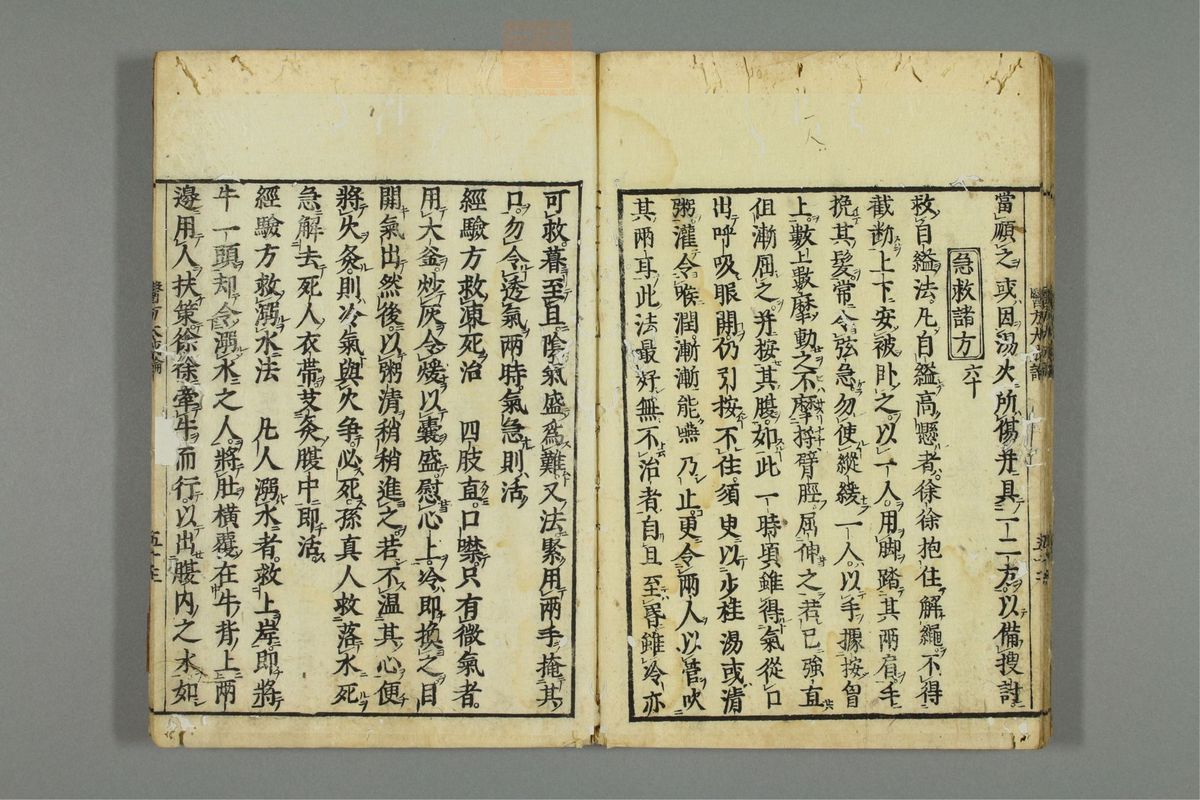 當頋之或因湯火所傷并具一二方以備搜討
急救諸方 六十
救自縊法凡自縊高懸者徐徐抱住解繩不得
截斷上下安被臥之以一人用脚踏其兩肩手
挽其髮常令弦急勿使縱緩一人以手㩀按胷
上數上數摩動之不摩捋臂脛屈伸之若已強直
但漸屈之并按其腹如此一時頃雖得氣從口
出呼吸眼開仍引按不住須臾以少桂湯或清
粥灌令喉潤漸漸能嚥乃止更令兩人以管吹
其兩耳此法最好無不治者自旦至㬰雖冷亦
可救暮至旦陰氣盛為難又法緊用兩手掩其
口勿令透氣兩時氣急則活
經驗方救凍死治 四肢直口噤只有微氣者
用大釜炒灰令煖以囊盛慰心上冷即換之目
開氣出然後以粥清稍稍進之若不温其心便
將火灸則冷氣與火争必死孫真人救落水死
急解去死人衣帶艾灸臍中即活
經驗方救溺水法 凡人溺水者救上岸即將
牛一頭却令溺水之人將肚橫覆在牛背上兩
邊用人扶策徐徐牽牛而行以出腹內之水如